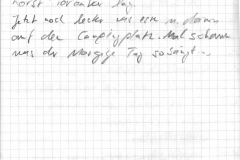 horst darunter lag.
Jetzt noch lecker was essen u. dann
auf den Campingplatz. Mal schauen
was der Morgige Tag so bringt..